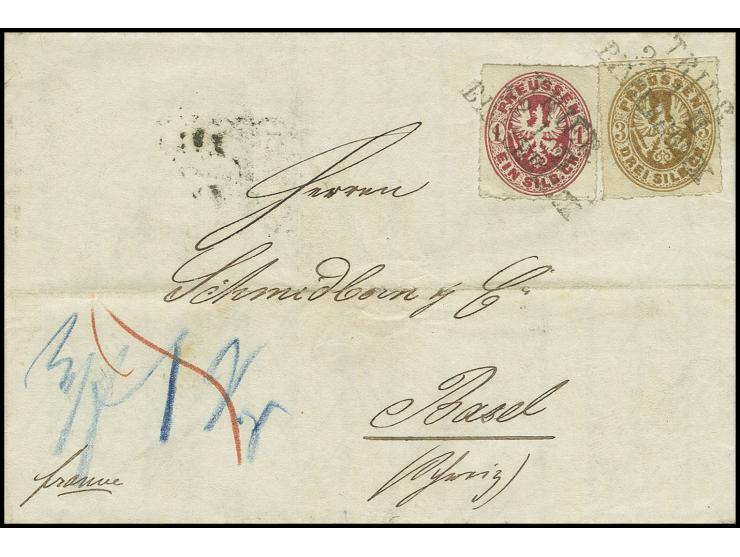 PREUSSEN
1 1
EIN SILB.GR.
PREUSSEN
3 3
DREI SILB.GR.
TRIER
Herren
Schmidborn & Cie
Basel
(Schweiz)
franco